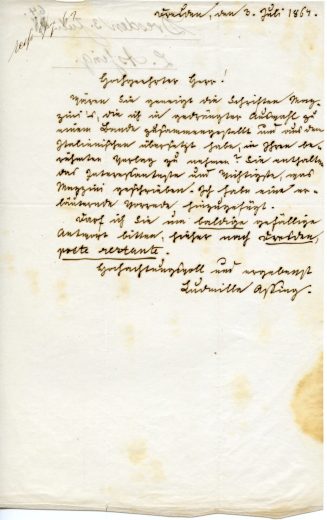 Dresden, den 3. Juli 1867.
Hochgeehrter Herr!
Wären Sie geneigt die Schriften Maz-
zini's, die ich in gedrängter Auswahl zu
einem Bande zusammengestellt und aus dem
Italienischen übersetzt habe, in Ihren be-
rühmten Verlag zu nehmen? Sie enthalten
das Interessanteste und Wichtigste, was
Mazzini geschrieben. Ich habe eine er-
läuternde Vorrede hinzugefügt.
Darf ich Sie um baldige gefällige
Antwort bitten, hieher nach Dresden,
poste restante.
Hochachtungsvoll und ergebenst
Ludmilla Assing.